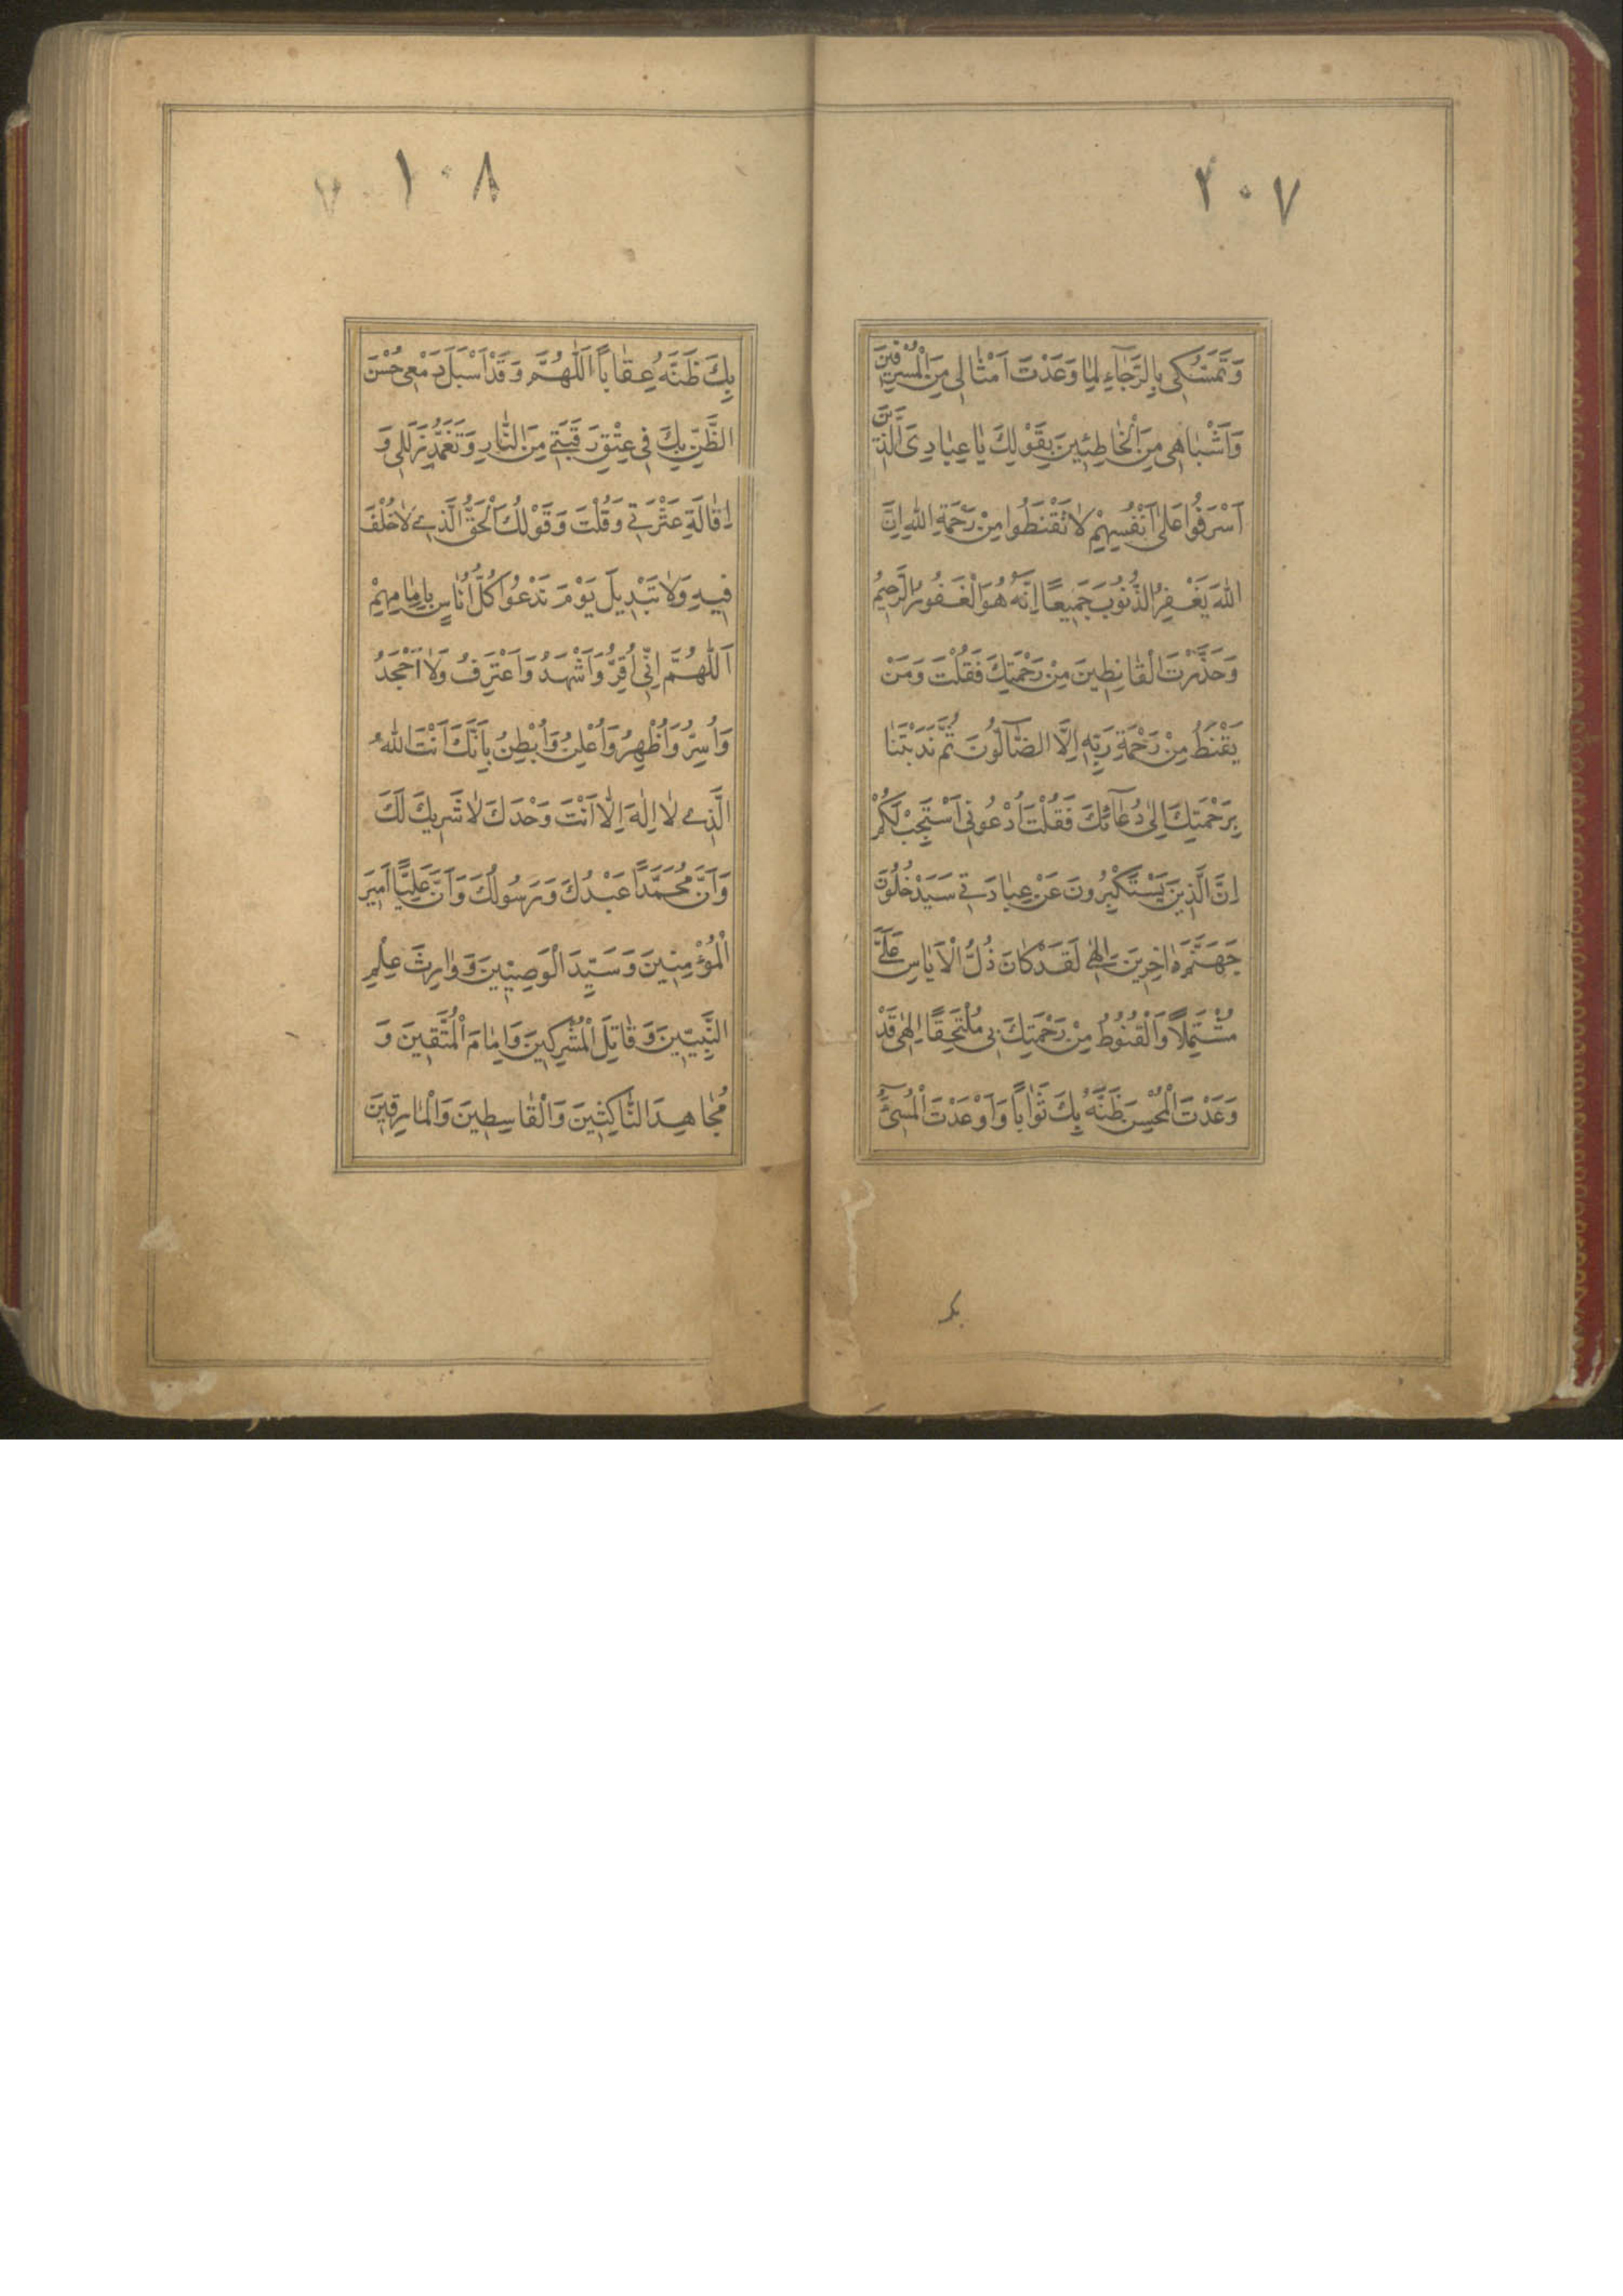 ٢٠٧
وَتَمَسُّكِى بِالرَّجٰٓاءِ لِمٰا وَعَدْتَ اَمْثٰالِى مِنَ الْمُسْرِفِينَ
وَاَشْبٰاهِى مِنَ الْخٰاطِئِينَ بِقَوْلِكَ يٰا عِبٰادِىَ الَّذِينَ
اَسْرَفُوا عَلٰى اَنْفُسِهِمْ لٰا تَقْنَطُوا مِنْ رَحْمَةِ اللّٰهِ اِنَّ
اللّٰهَ يَغْفِرُ الذُّنُوبَ جَمِيعًا اِنَّهُ هُوَ الْغَفُورُ الرَّحِيمُ
وَحَذَّرْتَ الْقٰانِطِينَ مِنْ رَحْمَتِكَ فَقُلْتَ وَمَنْ
يَقْنَطُ مِنْ رَحْمَةِ رَبِّهِ اِلَّا الضّٰٓالُّونَ ثُمَّ نَدَبْتَنٰا
بِرَحْمَتِكَ اِلٰى دُعٰٓائِكَ فَقُلْتَ اُدْعُونِى اَسْتَجِبْ لَكُمْ
اِنَّ الَّذِينَ يَسْتَكْبِرُونَ عَنْ عِبٰادَتِى سَيَدْخُلُونَ
جَهَنَّمَ دٰاخِرِينَ اِلٰهِى لَقَدْ كٰانَ ذُلُّ الْاَيٰاسِ عَلَىَّ
مُشْتَمِلًا وَالْقُنُوطُ مِنْ رَحْمَتِكَ بِى مُلْتَحِفًا اِلٰهِى قَدْ
وَعَدْتَ الْمُحْسِنَ ظَنَّهُ بِكَ ثَوٰابًا وَاَوْعَدْتَ الْمُسِىٓءَ
١٠٨
بِكَ ظَنَّهُ عِقٰابًا اَللّٰهُمَّ وَقَدْ اَسْبَلَ دَمْعِى حُسْنَ
الظَّنِّ بِكَ فِى عِتْقِ رَقَبَتِى مِنَ النّٰارِ وَتَغَمُّدِ زَلَلِى وَ
اِقٰالَةِ عَثْرَتِى وَقُلْتَ وَقَوْلُكَ الْحَقُّ الَّذِى لٰا خُلْفَ
فِيهِ وَلٰا تَبْدِيلَ يَوْمَ نَدْعُوا كُلَّ اُنٰاسٍ بِاِمٰامِهِمْ
اَللّٰهُمَّ اِنِّى اُقِرُّ وَاَشْهَدُ وَاَعْتَرِفُ وَلٰا اَجْحَدُ
وَاُسِرُّ وَاُظْهِرُ وَاُعْلِنُ وَاُبْطِنُ بِاَنَّكَ اَنْتَ اللّٰهُ
الَّذِى لٰا اِلٰهَ اِلّٰا اَنْتَ وَحْدَكَ لٰا شَرِيكَ لَكَ
وَاَنَّ مُحَمَّدًا عَبْدُكَ وَرَسُولُكَ وَاَنَّ عَلِيًّا اَمِيرَ
الْمُؤْمِنِينَ وَسَيِّدَ الْوَصِيِّينَ وَوٰارِثَ عِلْمِ
النَّبِيِّينَ وَقٰاتِلَ الْمُشْرِكِينَ وَاِمٰامَ الْمُتَّقِينَ وَ
مُجٰاهِدَ النّٰاكِثِينَ وَالْقٰاسِطِينَ وَالْمٰارِقِينَ